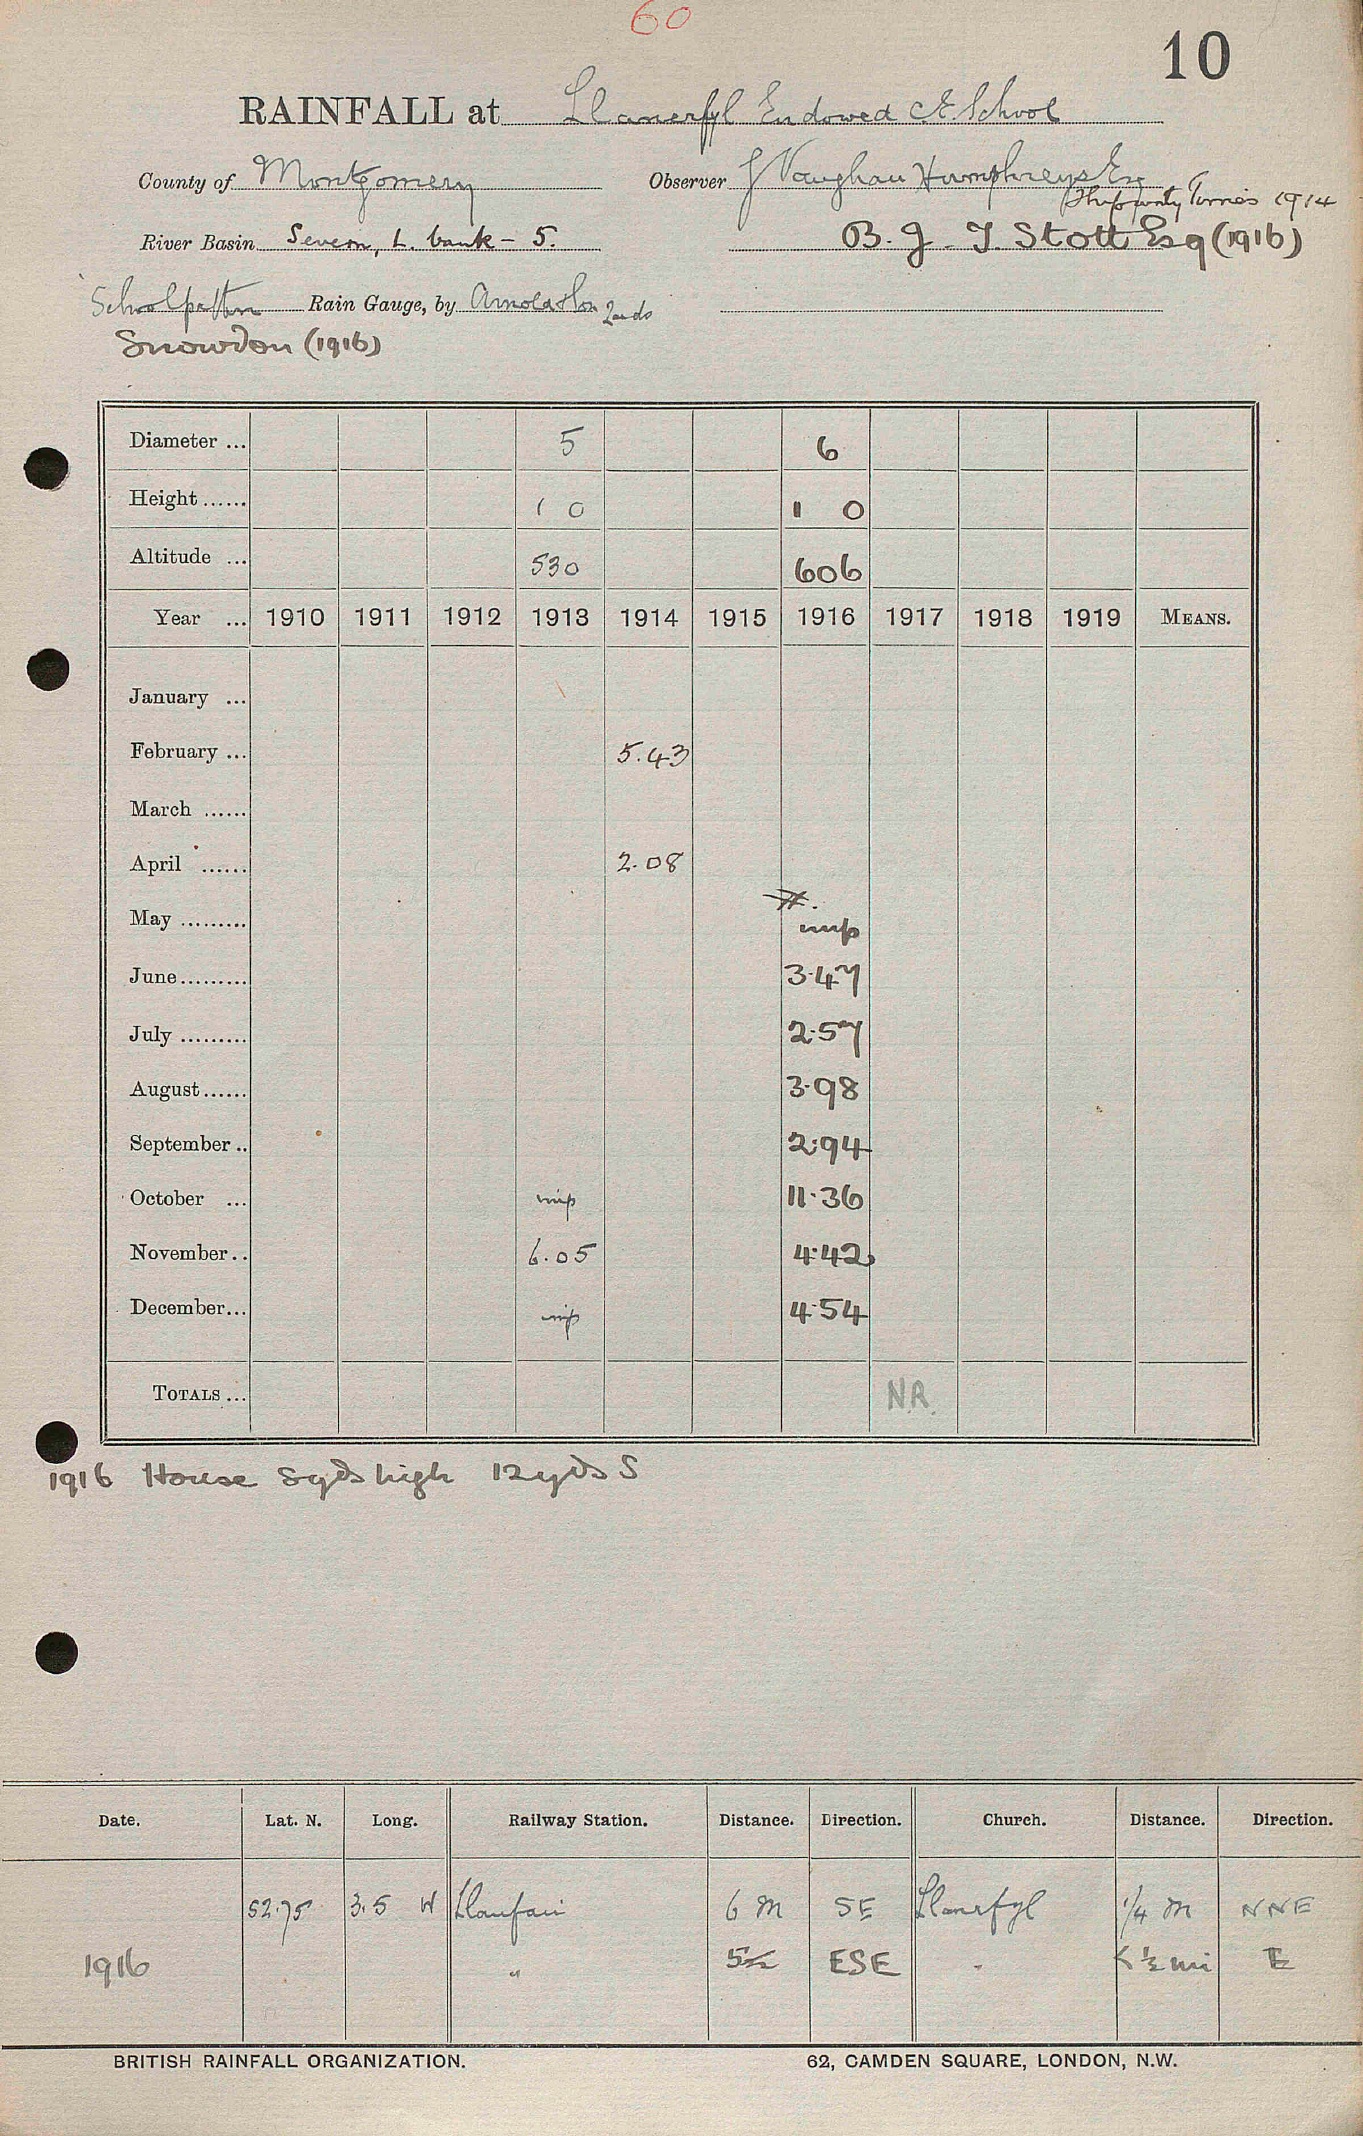 60
10
RAINFALL at Llanerfyl Endowed CE School
County of Montgomery Observer J Vaughan Humphreys Esq
1914
River Basin Severn, L. bank - 5. B. J. T. Stott Esq (1916)
School pattern Rain Gauge, by Arnold & Son
Snowdon (1916)
Diameter ... 5 6
Height ...... 1 0 1 0
Altitude ... 530 606
Year ... 1910 1911 1912 1913 1914 1915 1916 1917 1918 1919 MEANS.
January ...
February ... 5.43
March ......
April ...... 2.08
May ......... imp
June ......... 3.47
July ......... 2.57
August ...... 3.98
September .. 2.94
October ... imp 11.36
November .. 6.05 4.42
December ... imp 4.54
TOTALS ... N.R.
1916 House 8yds high 12yds S
Date. Lat. N. Long. Railway Station. Distance. Direction. Church. Distance. Direction.
52.75 3.5 W Llanfair 6 M SE Llanerfyl 1/4 M NNE
1916 " 5½ ESE " < ½ mi E
BRITISH RAINFALL ORGANIZATION. 62, CAMDEN SQUARE, LONDON, N.W.